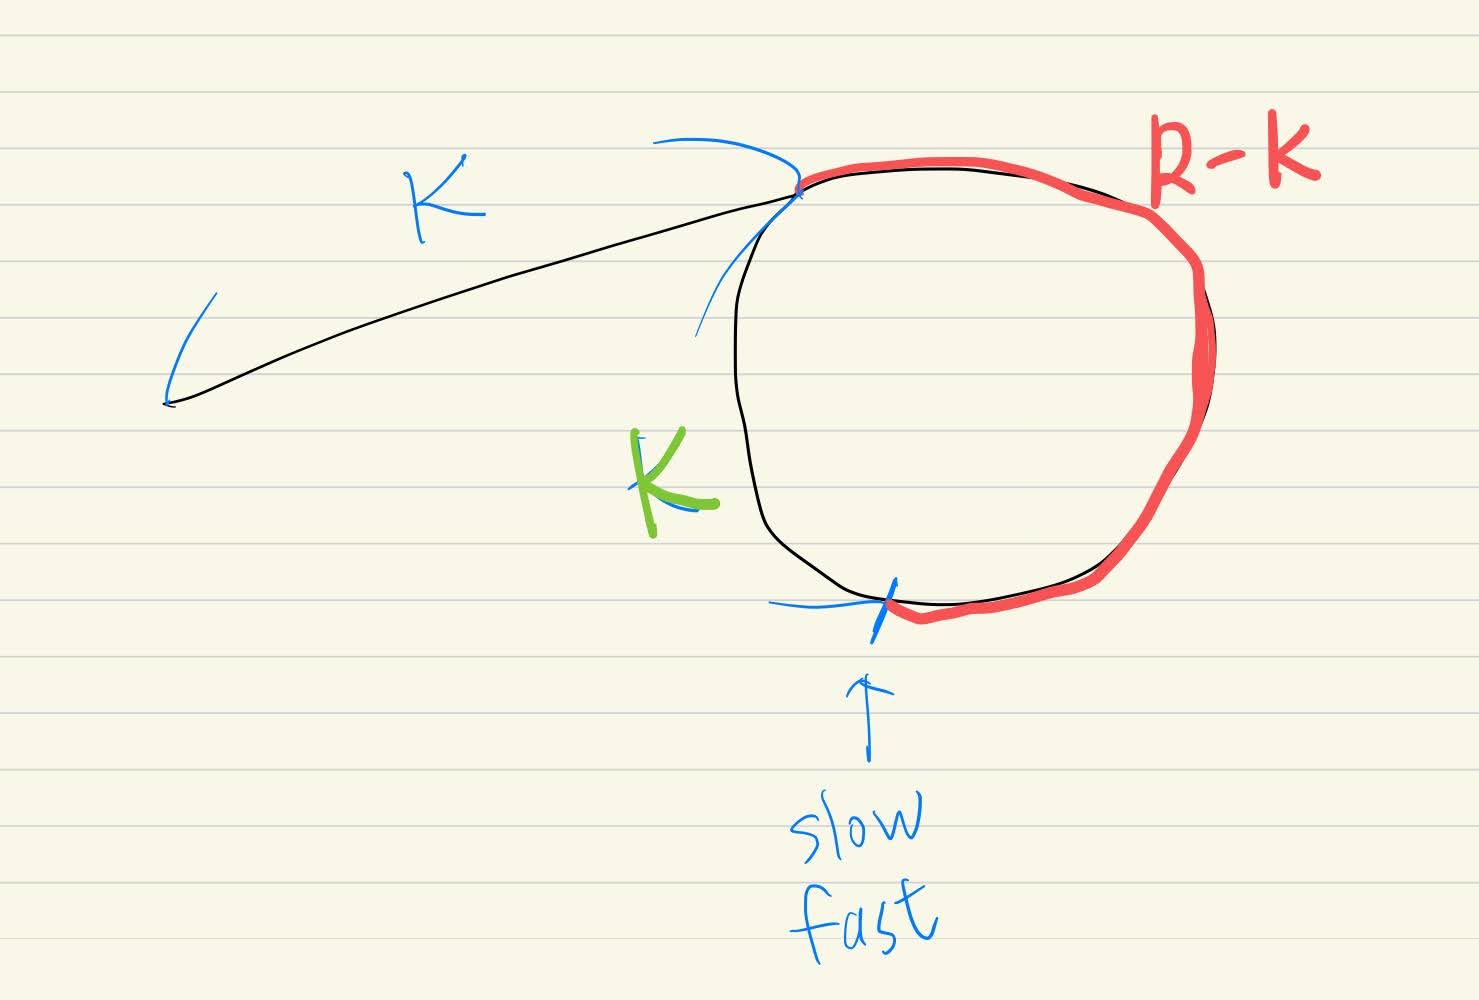 K
R-K
K
slow
fast